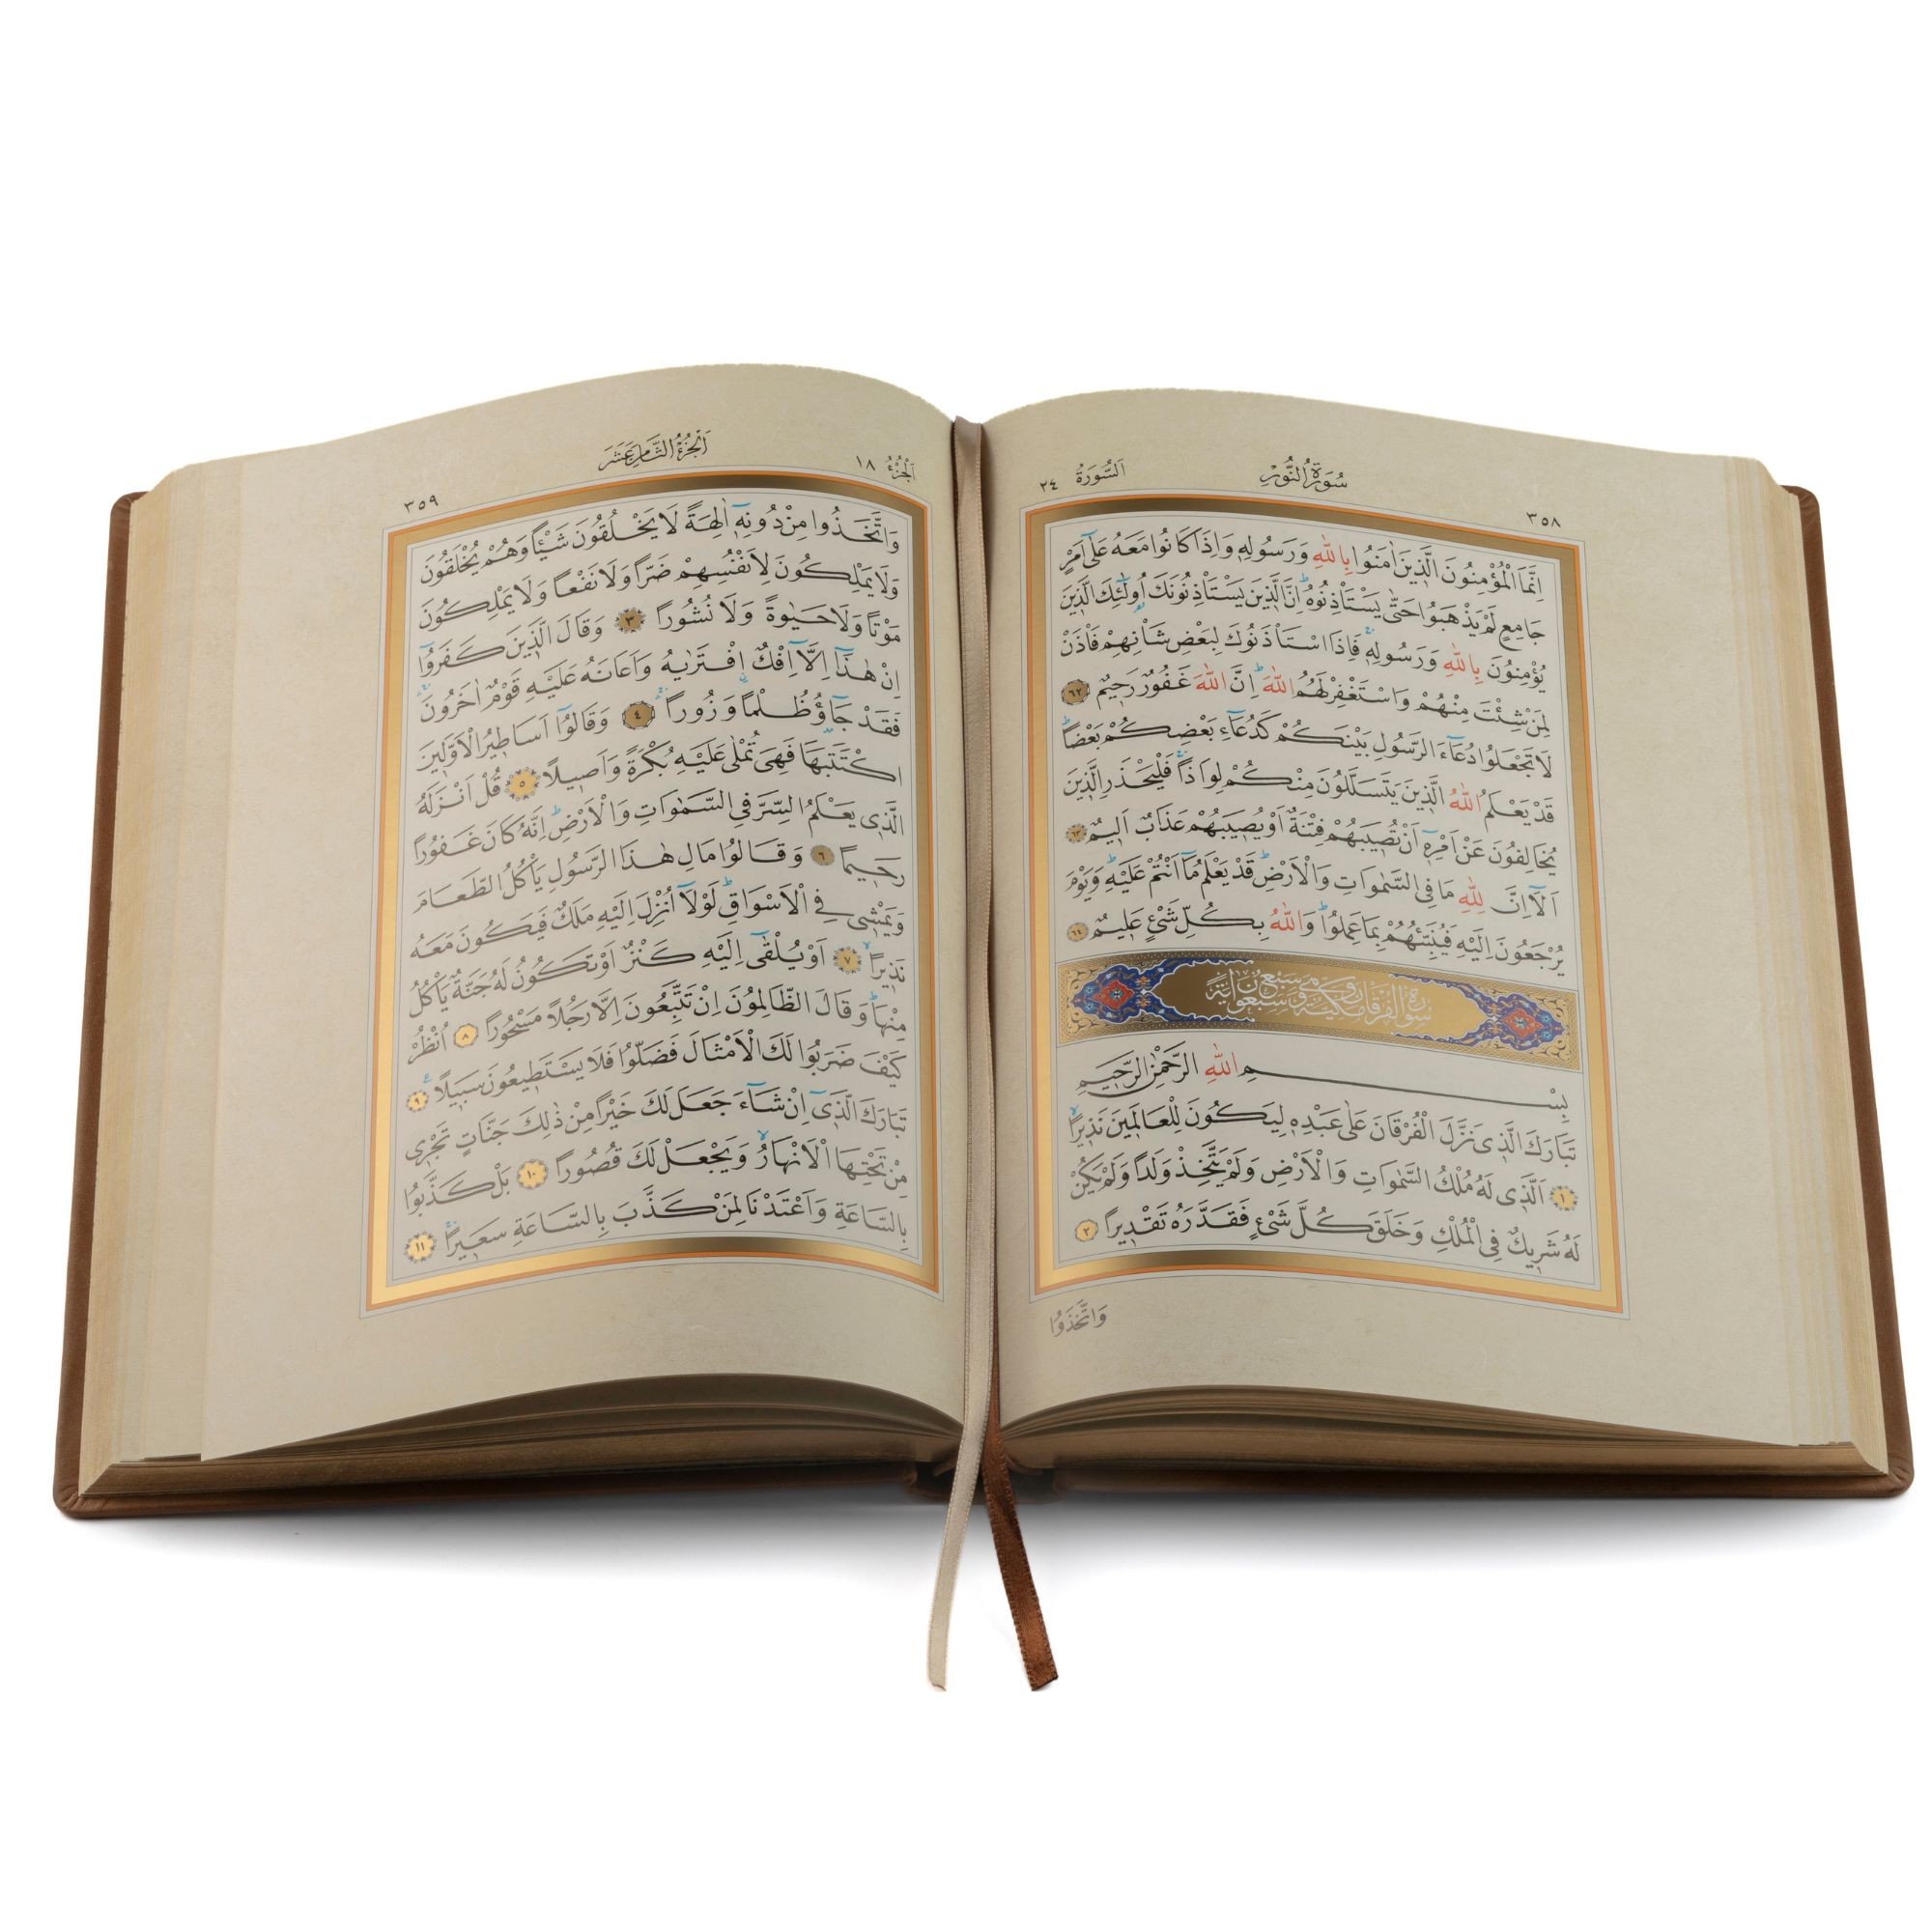 سُورَةُ النُّورِ
اَلسُّورَةُ ٢٤
٣٥٨
اِنَّمَا الْمُؤْمِنُونَ الَّذ۪ينَ اٰمَنُوا بِاللّٰهِ وَرَسُولِه۪ وَاِذَا كَانُوا مَعَهُ عَلٰٓى اَمْرٍ
جَامِعٍ لَمْ يَذْهَبُوا حَتّٰى يَسْتَأْذِنُوهُۜ اِنَّ الَّذ۪ينَ يَسْتَأْذِنُونَكَ اُو۬لٰٓئِكَ الَّذ۪ينَ
يُؤْمِنُونَ بِاللّٰهِ وَرَسُولِه۪ۚ فَاِذَا اسْتَأْذَنُوكَ لِبَعْضِ شَأْنِهِمْ فَأْذَنْ
لِمَنْ شِئْتَ مِنْهُمْ وَاسْتَغْفِرْ لَهُمُ اللّٰهَۜ اِنَّ اللّٰهَ غَفُورٌ رَح۪يمٌ ٦٢
لَا تَجْعَلُوا دُعَٓاءَ الرَّسُولِ بَيْنَكُمْ كَدُعَٓاءِ بَعْضِكُمْ بَعْضًاۜ
قَدْ يَعْلَمُ اللّٰهُ الَّذ۪ينَ يَتَسَلَّلُونَ مِنْكُمْ لِوَاذًاۚ فَلْيَحْذَرِ الَّذ۪ينَ
يُخَالِفُونَ عَنْ اَمْرِه۪ٓ اَنْ تُص۪يبَهُمْ فِتْنَةٌ اَوْ يُص۪يبَهُمْ عَذَابٌ اَل۪يمٌ ٦٣
اَلَٓا اِنَّ لِلّٰهِ مَا فِي السَّمٰوَاتِ وَالْاَرْضِۜ قَدْ يَعْلَمُ مَٓا اَنْتُمْ عَلَيْهِۜ وَيَوْمَ
يُرْجَعُونَ اِلَيْهِ فَيُنَبِّئُهُمْ بِمَا عَمِلُواۜ وَاللّٰهُ بِكُلِّ شَيْءٍ عَل۪يمٌ ٦٤
سورة الفرقان مكية وهي سبع وسبعون آية
بِسْمِ اللّٰهِ الرَّحْمٰنِ الرَّح۪يمِ
تَبَارَكَ الَّذ۪ي نَزَّلَ الْفُرْقَانَ عَلٰى عَبْدِه۪ لِيَكُونَ لِلْعَالَم۪ينَ نَذ۪يرًاۙ
١ اَلَّذ۪ي لَهُ مُلْكُ السَّمٰوَاتِ وَالْاَرْضِ وَلَمْ يَتَّخِذْ وَلَدًا وَلَمْ يَكُنْ
لَهُ شَر۪يكٌ فِي الْمُلْكِ وَخَلَقَ كُلَّ شَيْءٍ فَقَدَّرَهُ تَقْد۪يرًا ٢
وَاتَّخَذُوا
اَلْجُزْءُ ١٨
اَلْجُزْءُ الثَّامِنَ عَشَرَ
٣٥٩
وَاتَّخَذُوا مِنْ دُونِه۪ٓ اٰلِهَةً لَا يَخْلُقُونَ شَيْـًٔا وَهُمْ يُخْلَقُونَ
وَلَا يَمْلِكُونَ لِاَنْفُسِهِمْ ضَرًّا وَلَا نَفْعًا وَلَا يَمْلِكُونَ
مَوْتًا وَلَا حَيٰوةً وَلَا نُشُورًا ٣ وَقَالَ الَّذ۪ينَ كَفَرُٓوا
اِنْ هٰذَٓا اِلَّٓا اِفْكٌ افْتَرٰيهُ وَاَعَانَهُ عَلَيْهِ قَوْمٌ اٰخَرُونَۚ
فَقَدْ جَٓاؤُ۫ ظُلْمًا وَزُورًاۚ ٤ وَقَالُٓوا اَسَاط۪يرُ الْاَوَّل۪ينَ
اكْتَتَبَهَا فَهِيَ تُمْلٰى عَلَيْهِ بُكْرَةً وَاَص۪يلًا ٥ قُلْ اَنْزَلَهُ
الَّذ۪ي يَعْلَمُ السِّرَّ فِي السَّمٰوَاتِ وَالْاَرْضِۜ اِنَّهُ كَانَ غَفُورًا
رَح۪يمًا ٦ وَقَالُوا مَالِ هٰذَا الرَّسُولِ يَأْكُلُ الطَّعَامَ
وَيَمْش۪ي فِي الْاَسْوَاقِۜ لَوْلَٓا اُنْزِلَ اِلَيْهِ مَلَكٌ فَيَكُونَ مَعَهُ
نَذ۪يرًاۙ ٧ اَوْ يُلْقٰٓى اِلَيْهِ كَنْزٌ اَوْ تَكُونُ لَهُ جَنَّةٌ يَأْكُلُ
مِنْهَاۜ وَقَالَ الظَّالِمُونَ اِنْ تَتَّبِعُونَ اِلَّا رَجُلًا مَسْحُورًا ٨ اُنْظُرْ
كَيْفَ ضَرَبُوا لَكَ الْاَمْثَالَ فَضَلُّوا فَلَا يَسْتَط۪يعُونَ سَب۪يلًا۟ ٩
تَبَارَكَ الَّذ۪ٓي اِنْ شَٓاءَ جَعَلَ لَكَ خَيْرًا مِنْ ذٰلِكَ جَنَّاتٍ تَجْر۪ي
مِنْ تَحْتِهَا الْاَنْهَارُۙ وَيَجْعَلْ لَكَ قُصُورًا ١٠ بَلْ كَذَّبُوا
بِالسَّاعَةِ وَاَعْتَدْنَا لِمَنْ كَذَّبَ بِالسَّاعَةِ سَع۪يرًاۚ ١١